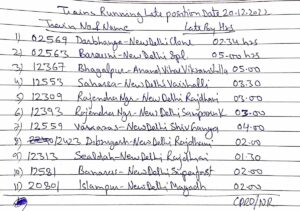 Trains Running Late position Date 20.12.2022
Train No. & Name Late By Hrs
1) 02569 Darbhanga-New Delhi Clone 02:34 hrs
2) 02563 Barauni-New Delhi Spl. 05-00 hrs
3) 12367 Bhagalpur-Anand Vihar Vikramshila 05.00
4) 12553 Saharsa-New Delhi Vaishali 03.30
5) 12309 Rajendra Ngr-New Delhi Rajdhani 03.00
6) 12393 Rajendra Ngr-New Delhi Sampoorn K 03.00
7) 12559 Varanasi-New Delhi Shiv Ganga 04.00
8) 12423 Dibrugarh-New Delhi Rajdhani 02.00
9) 12313 Sealdah-New Delhi Rajdhani 01.30
10) 12581 Banaras-New Delhi Superfast 02.00
11) 20801 Islampur-New Delhi Magadh 02.00
CPRO/NR